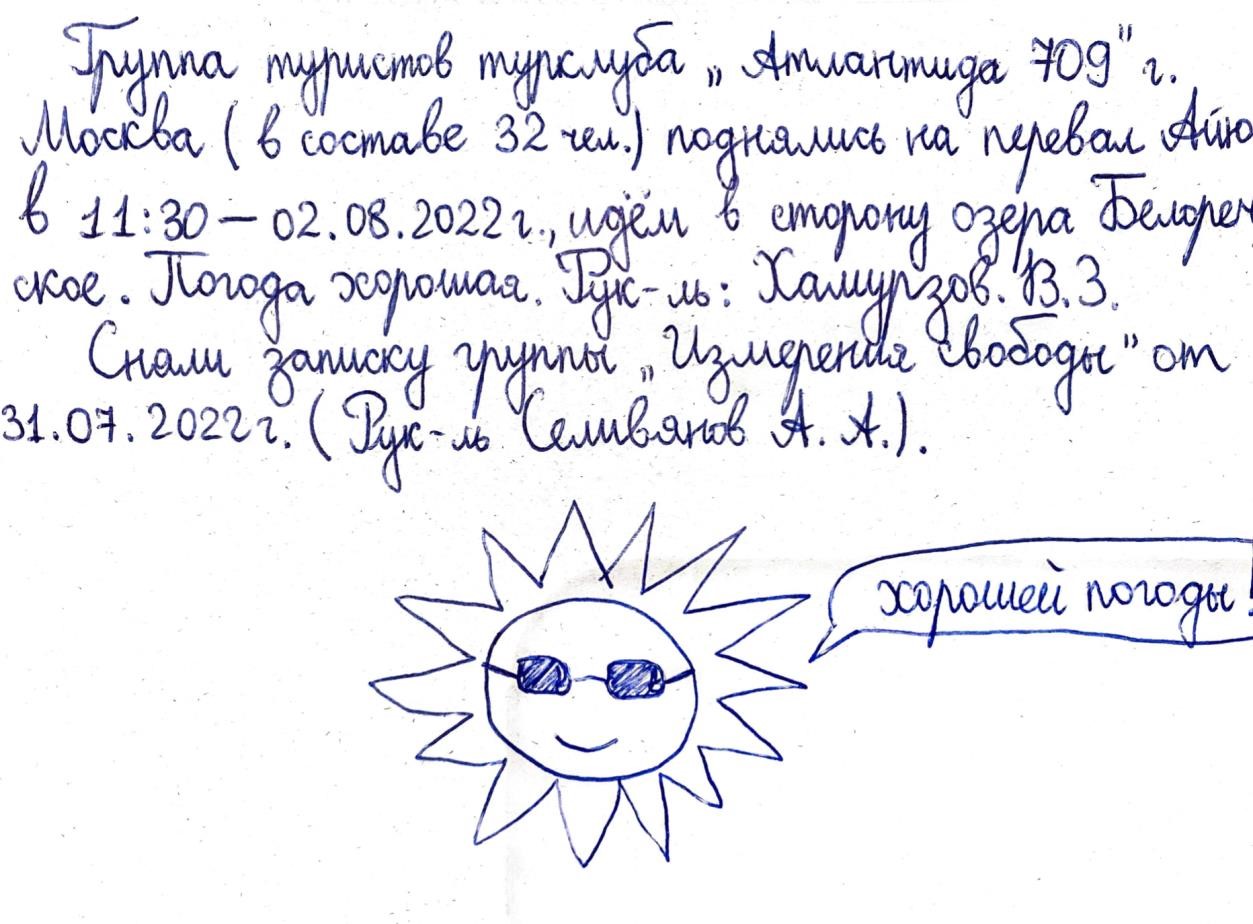 Группа туристов турклуба „Атлантида 709" г.
Москва (в составе 32 чел.) поднялись на перевал Айю
в 11:30 – 02.08.2022г., идём в сторону озера Белореч
ское. Погода хорошая. Рук-ль: Хамурзов. В.З.
Сняли записку группы „Измерения свободы" от
31.07.2022г. (Рук-ль Селивянов А. А.).
хорошей погоды!